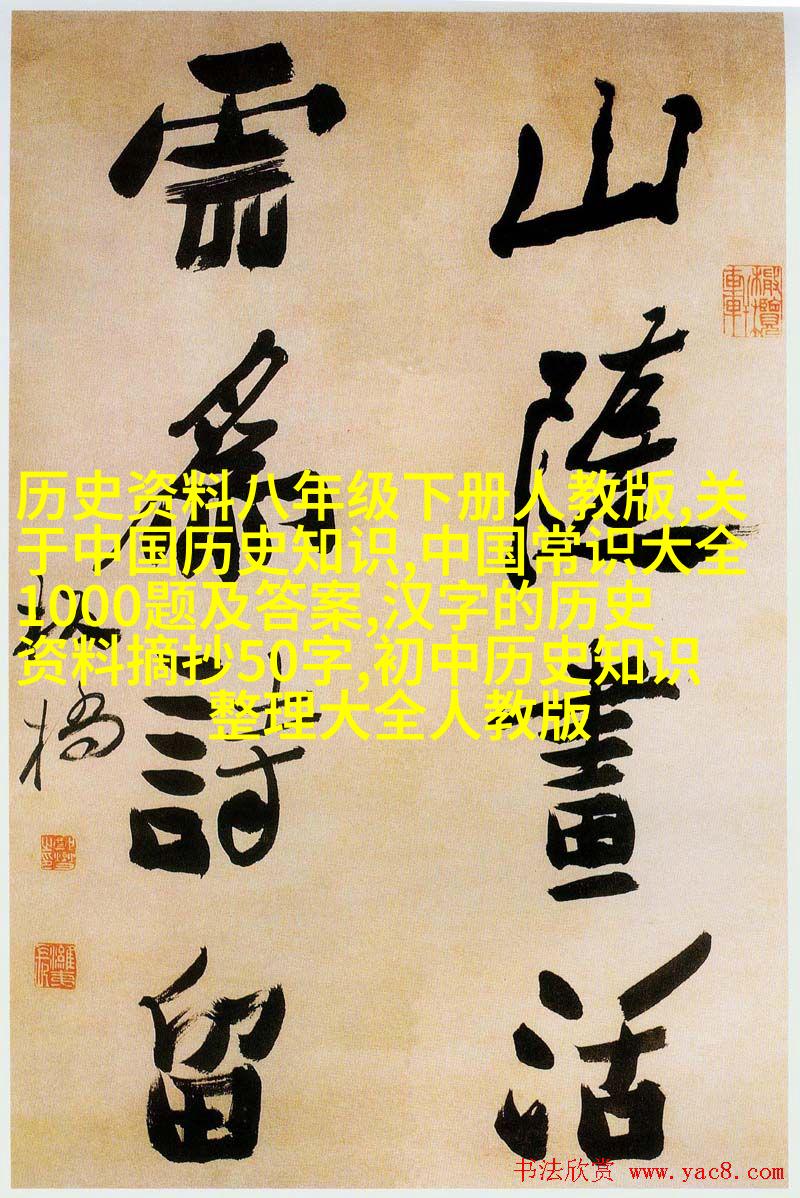 山隨畫活
雲為詩留
板橋
历史资料八年级下册人教版,关
于中国历史知识,中国常识大全
1000题及答案,汉字的历史
资料摘抄50字,初中历史知识
整理大全人教版
书法欣赏 www.yac8.com